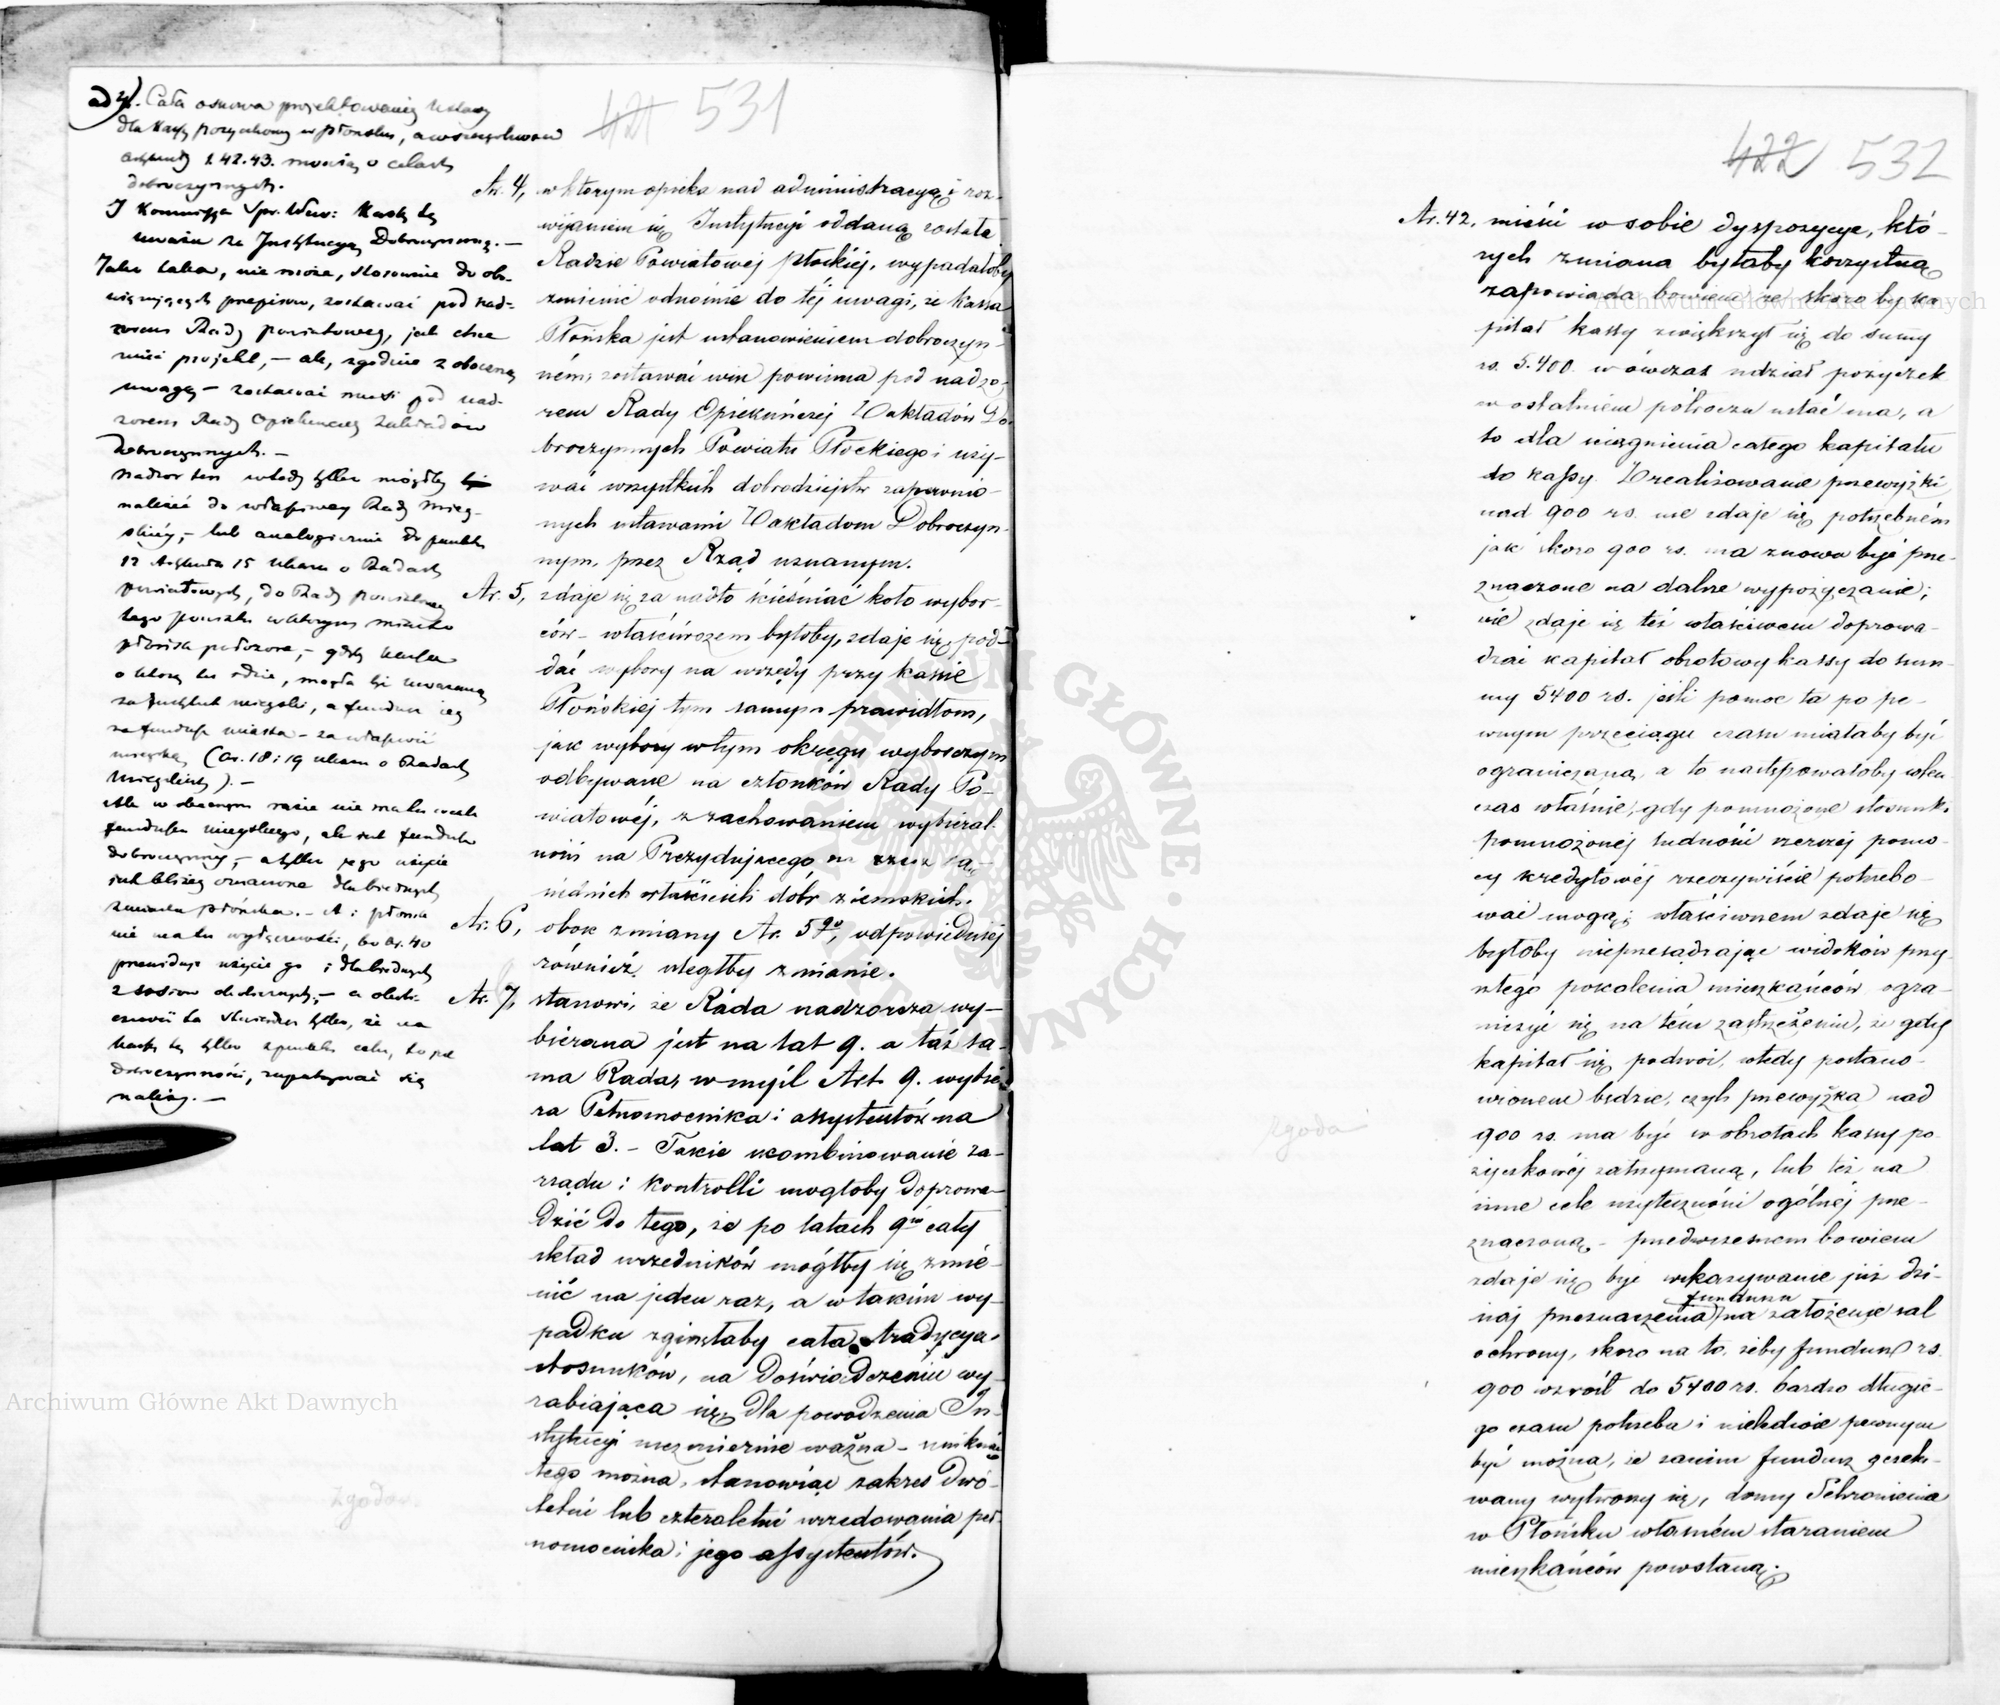 ad 4). Cała osnowa projektowanej Ustawy
dla Kassy pożyczkowej w Płońsku, a w szczególności
artykuły 1. 42. 43. mówią o celach
dobroczynnych.
I Kommissya Spr. Wew: Kassę tę
uważa za Instytucyą Dobroczynną. —
Jako taka, nie może, stosownie do obo-
wiązujących przepisów, zostawać pod nad-
zorem Rady powiatowej, jak chce
mieć projekt, — ale, zgodnie z oboczną
uwagą — zostawać musi pod nad-
zorem Rady Opiekuńczej Zakładów
Dobroczynnych. —
Nadzór ten wtedy tylko mógłby
należeć do właściwej Rady Miej-
skiéj, — lub analogicznie do punktu
12 Artykułu 15 Ukazu o Radach
powiatowych, do Rady powiatowej
tego powiatu w którym miasto
Płońsk położone, — gdyby kassa
o którą tu idzie, mogła być uważaną
za Instytut miejski, a fundusz jej
za fundusz miasta — za własność
miejską (Ar. 18 i 19 Ukazu o Radach
Miejskich). —
Ale w obecnym razie nie ma tu wcale
funduszu miejskiego, ale jest fundusz
dobroczynny, — a tylko jego użycie
jest bliżej oznaczone dla biednych
miasta Płońska. — A i płońsk
nie ma tu wyłączności, bo Ar. 40
przewiduje użycie go i dla biednych
z wsiów okolicznych, — a okoli-
czność ta stwierdza tylko, że na
kassę tę tylko z punktu celu, to jest
dobroczynności, zapatrywać się
należy. —
421 531
Ar. 4, w którym opieka nad administracyą i roz-
wijaniem się Instytucyi oddaną została
Radzie Powiatowej płockiéj, wypadałoby
zmienić odnośnie do téj uwagi, że kassa
Płońska jest ustanowieniem dobroczyn-
ném, zostawać win powinna pod nadzo-
rem Rady Opiekuńczéj Zakładów Do-
broczynnych Powiatu Płockiego i uży-
wać wszystkich dobrodziejstw zapewnio-
nych ustawami Zakładom Dobroczyn-
nym, przez Rząd uznanym.
Ar. 5, zdaje się za nadto ścieśniać koło wybor-
ców — właściwszem byłoby, zdaje się, pod-
dać wybory na urzędy przy kassie
Płońskiéj tym samym prawidłom,
jak wybory w tym okręgu wyborczym
odbywane na członków Rady Po-
wiatowéj, z zachowaniem wybieral-
ności na Prezydującego na rzecz są-
siednich właścicieli dóbr ziemskich.
Ar. 6, obok zmiany Ar. 5go, odpowiedniéj
również uległby zmianie.
Ar. 7, stanowi, że Rada nadzorcza wy-
biérana jest na lat 9. a taż sa-
ma Rada, w myśl Art. 9. wybié-
ra Pełnomocnika i assystentów na
lat 3. — Takie ukombinowanie za-
rządu i kontrolli mogłoby doprowa-
dzić do tego, że po latach 9ciu cały
skład urzędników mógłby się zmie-
nić na jeden raz, a w takim wy-
padku zginęłaby cała tradycya
stosunków, na doświadczeniu wy-
rabiająca się, dla powodzenia In-
stytucyi niezmiernie ważna — uniknąć
tego można, stanowiąc zakres dwó-
letni lub czteroletni urzędowania peł-
nomocnika i jego assystentów.
Zgoda
422 532
Ar. 42. mieści w sobie dyspozycye, któ-
rych zmiana byłaby korzystną
zapowiada bowiem, że skoro by ka-
pitał kassy zwiększył się do sumy
rs. 5.400. wówczas udział pożyczek
w ostatniem półroczu ustać ma, a
to dla ściągnienia całego kapitału
do kassy. Zrealizowanie przewyżki
nad 900 rs. nie zdaje się potrzebném
jak skoro 900 rs. ma znowu być prze-
znaczone na dalsze wypożyczanie;
nie zdaje się też właściwem doprowa-
dzać kapitał obrotowy kassy do sum-
my 5400 rs. jeśli pomoc ta po pe-
wnym przeciągu czasu miałaby być
ograniczaną, a to następowałoby wten-
czas właśnie, gdy pomnożone stosunki
pomnożonej ludności szerszéj pomo-
cy kredytowéj rzeczywiście potrzebo-
wać mogą; właściwem zdaje się
byłoby nieprzesądzając widoków przy-
szłego pokolenia mieszkańców ogra-
niczyć się na tém zastrzeżeniu, że gdy
kapitał się podwoi, wtedy postano-
wionem będzie, czyli przewyżka nad
900 rs. ma być w obrotach kassy po-
życzkowéj zatrzymaną, lub też na
inne cele użyteczności ogólnéj prze-
znaczoną — przedwczesnem bowiem
zdaje się być wskazywanie już dzi-
siaj przeznaczenia funduszu na założenie sal
ochrony, skoro na to, żeby fundusz rs.
900 wzrósł do 5400 rs. bardzo długie-
go czasu potrzeba i niekiedy pewnym
być można, że zanim fundusz oczeki-
wany wytworzy się, domy Schronienia
w Płońsku własném staraniem
mieszkańców powstaną.
zgoda
Archiwum Główne Akt Dawnych
Archiwum Główne Akt Dawnych
ARCHIWUM GŁÓWNE AKT DAWNYCH